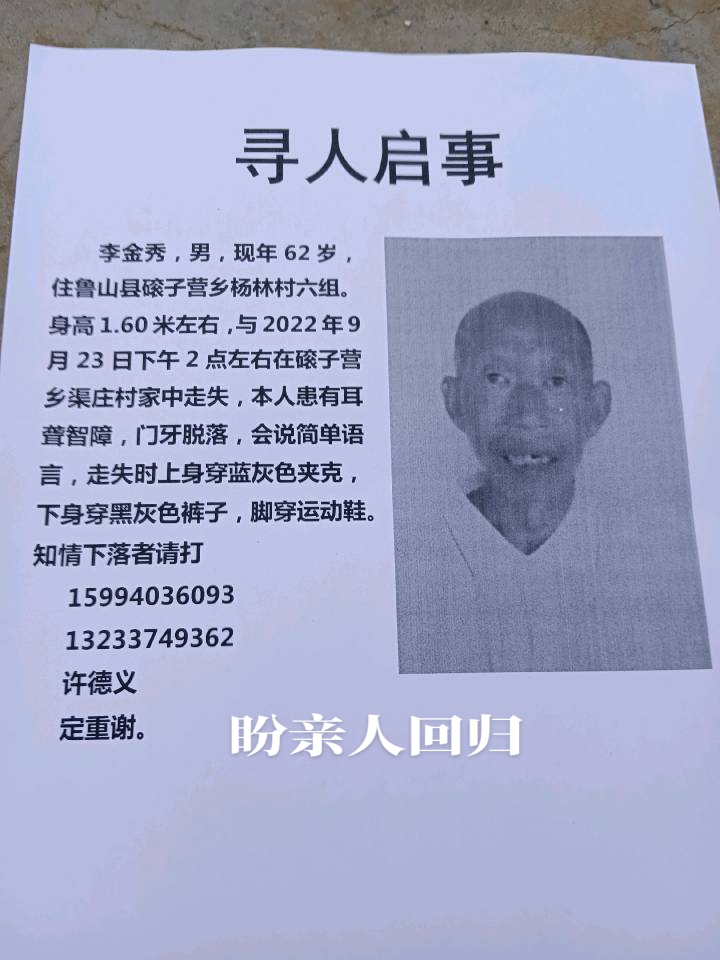 寻人启事
李金秀，男，现年 62 岁，
住鲁山县磙子营乡杨林村六组。
身高 1.60 米左右，与 2022 年 9
月 23 日下午 2 点左右在磙子营
乡渠庄村家中走失，本人患有耳
聋智障，门牙脱落，会说简单语
言，走失时上身穿蓝灰色夹克，
下身穿黑灰色裤子，脚穿运动鞋。
知情下落者请打
15994036093
13233749362
许德义
定重谢。
盼亲人回归